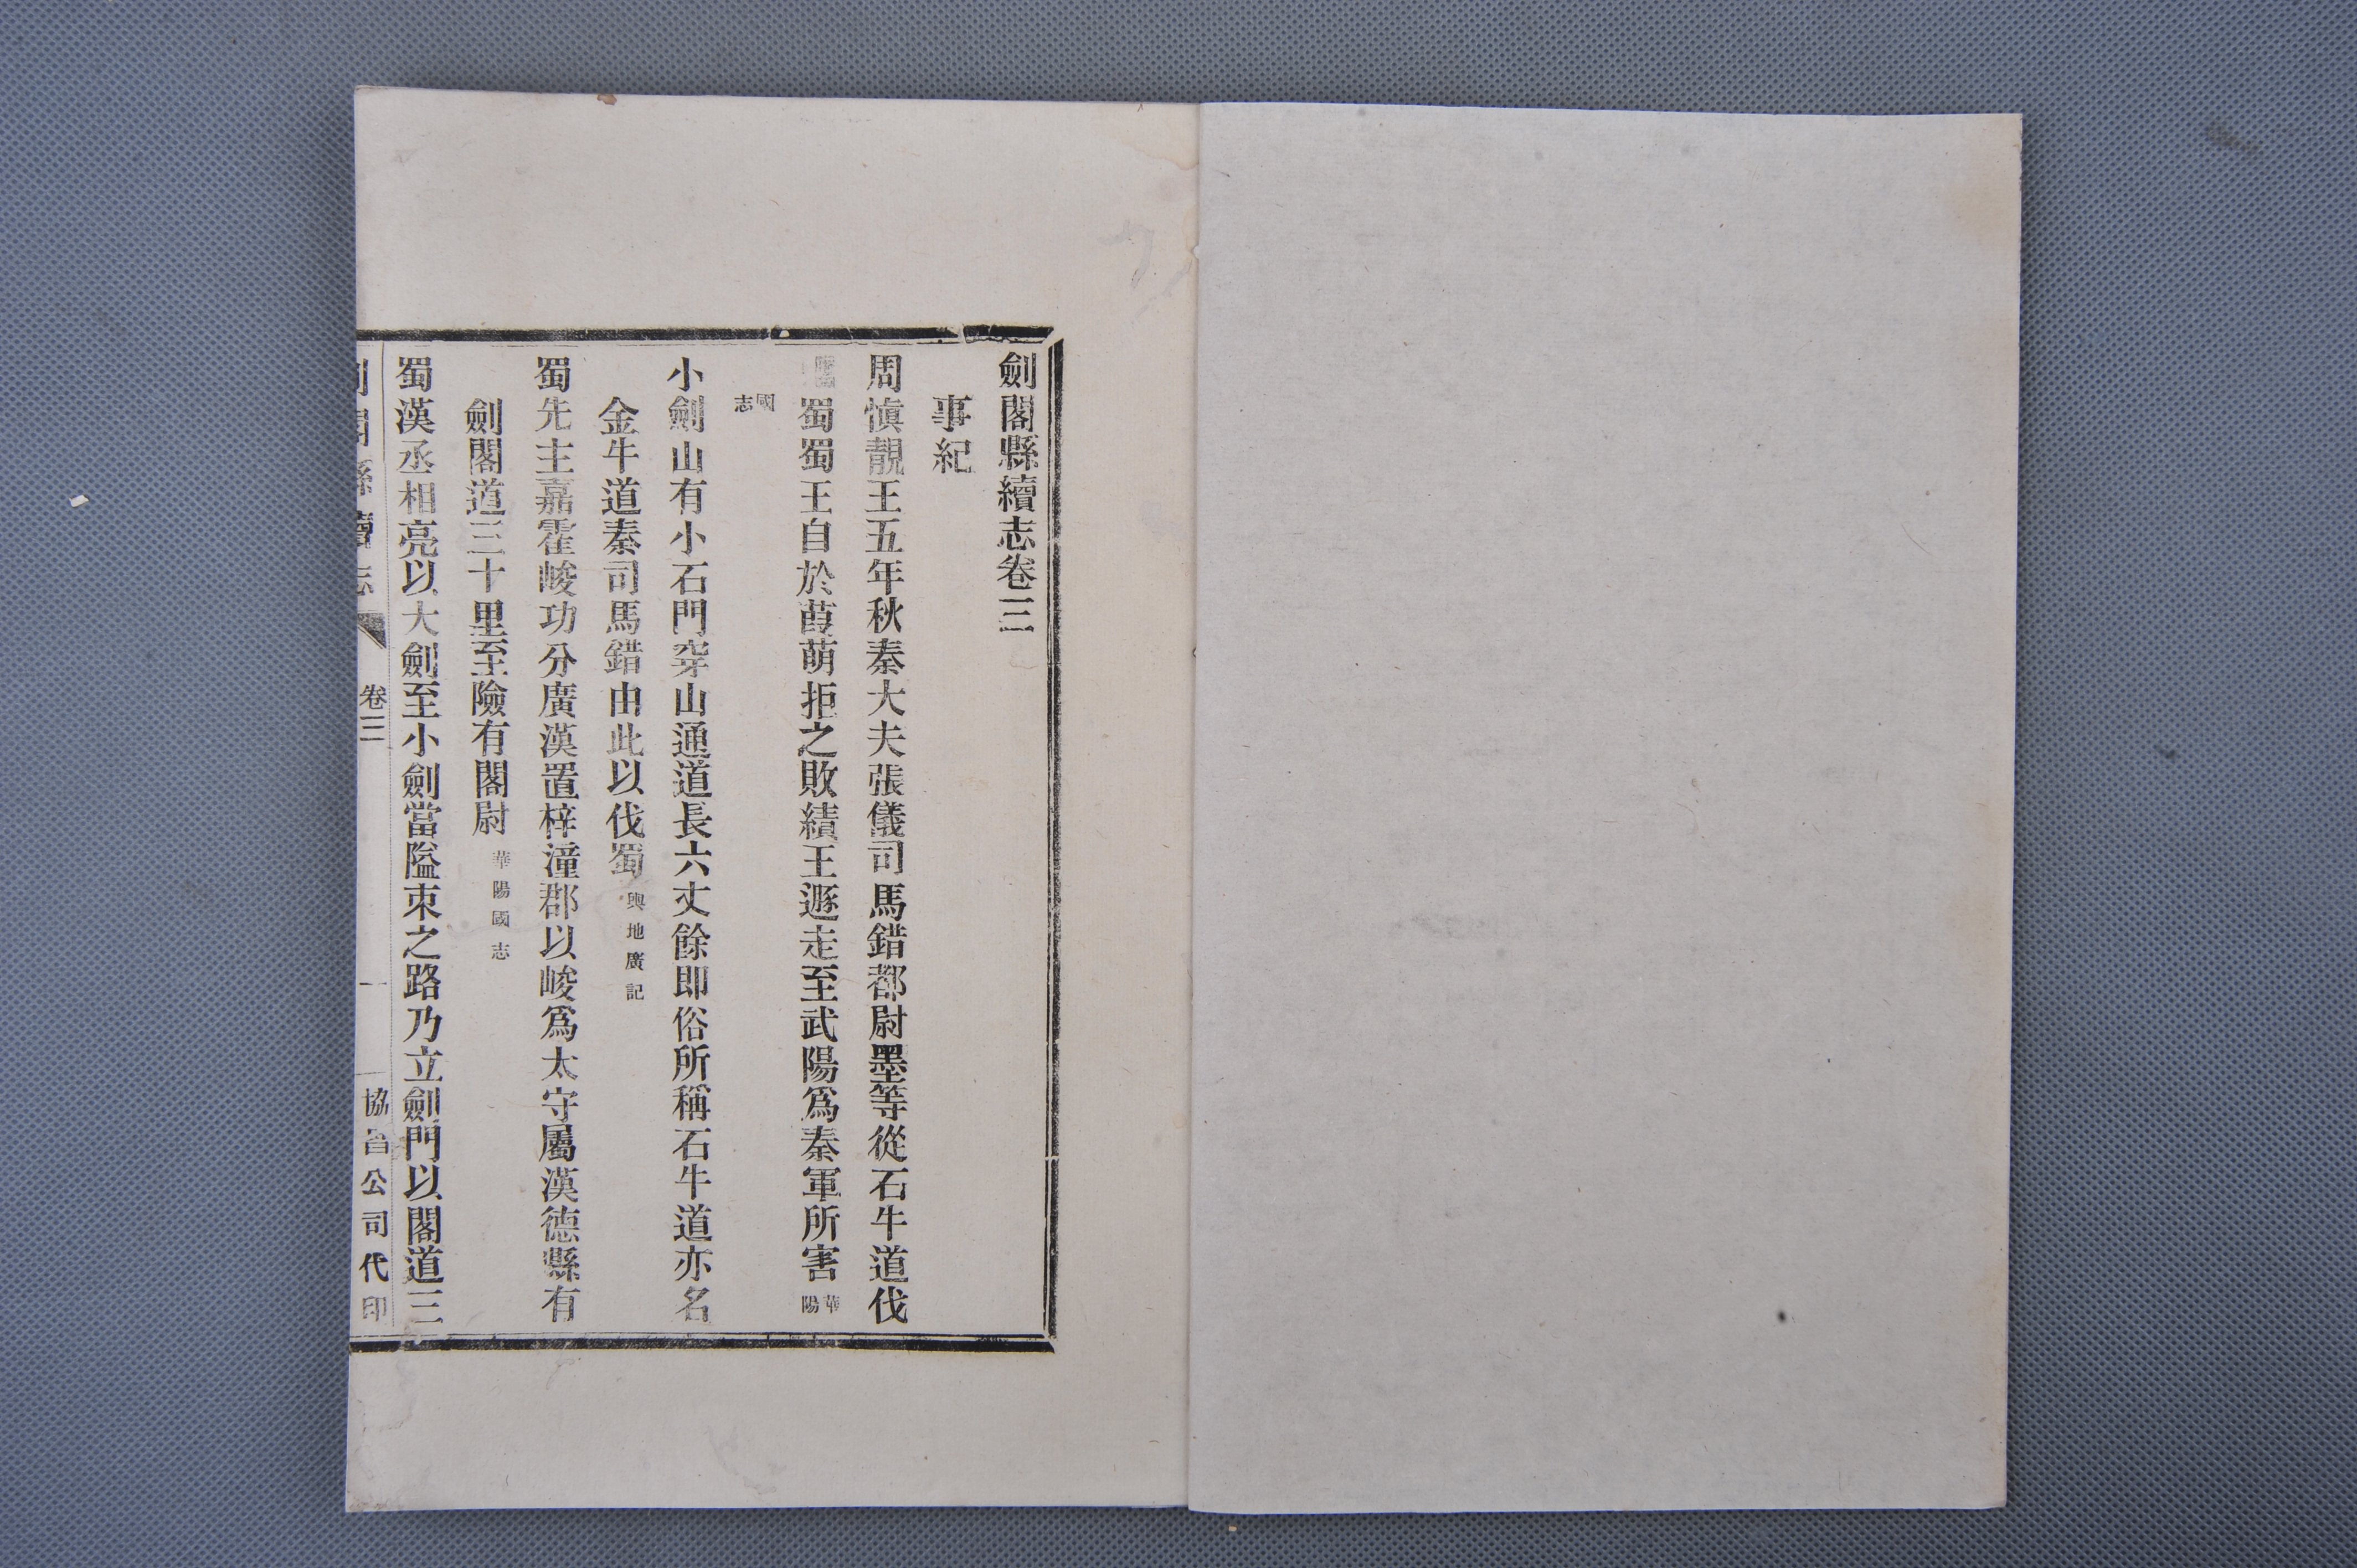 劍閣縣續志卷三
事紀
周慎靚王五年秋秦大夫張儀司馬錯都尉墨等從石牛道伐
蜀蜀王自於葭萌拒之敗績王遯走至武陽爲秦軍所害華陽
國志
小劍山有小石門穿山通道長六丈餘即俗所稱石牛道亦名
金牛道秦司馬錯由此以伐蜀輿地廣記
蜀先主嘉霍峻功分廣漢置梓潼郡以峻爲太守屬漢德縣有
劍閣道三十里至險有閣尉華陽國志
蜀漢丞相亮以大劍至小劍當隘束之路乃立劍門以閣道三
劍閣縣續志 卷三 一 協昌公司代印